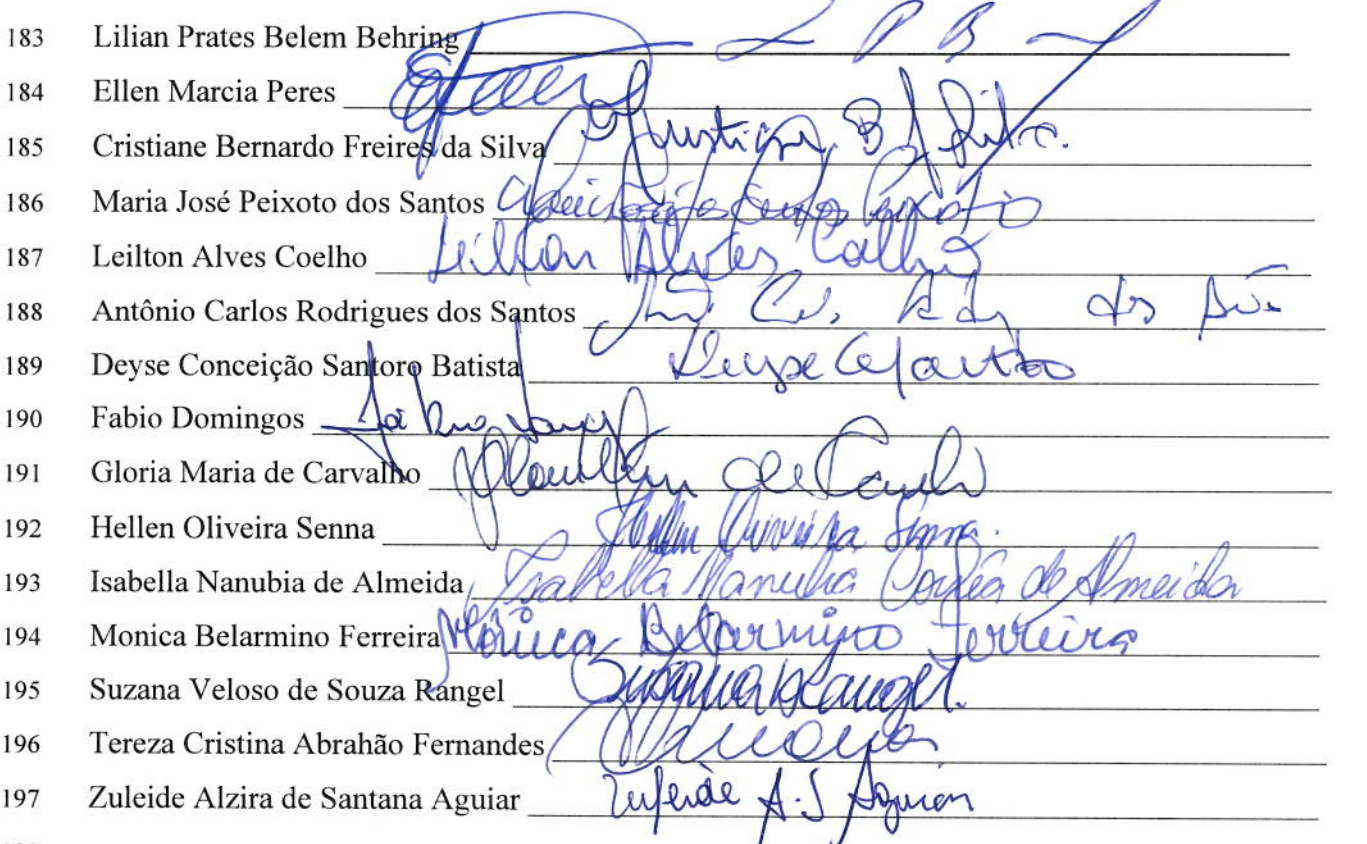 183 Lilian Prates Belem Behring L P B
184 Ellen Marcia Peres
185 Cristiane Bernardo Freires da Silva Cristiane B f Silva.
186 Maria José Peixoto dos Santos Peixoto
187 Leilton Alves Coelho Leilton Alves Coelho
188 Antônio Carlos Rodrigues dos Santos dos
189 Deyse Conceição Santoro Batista Deyse
190 Fabio Domingos
191 Gloria Maria de Carvalho de
192 Hellen Oliveira Senna Hellen Oliveira Senna.
193 Isabella Nanubia de Almeida Isabella Nanubia Corrêa de Almeida
194 Monica Belarmino Ferreira Mônica Belarmino Ferreira
195 Suzana Veloso de Souza Rangel Rangel.
196 Tereza Cristina Abrahão Fernandes
197 Zuleide Alzira de Santana Aguiar Zuleide A.S Aguiar